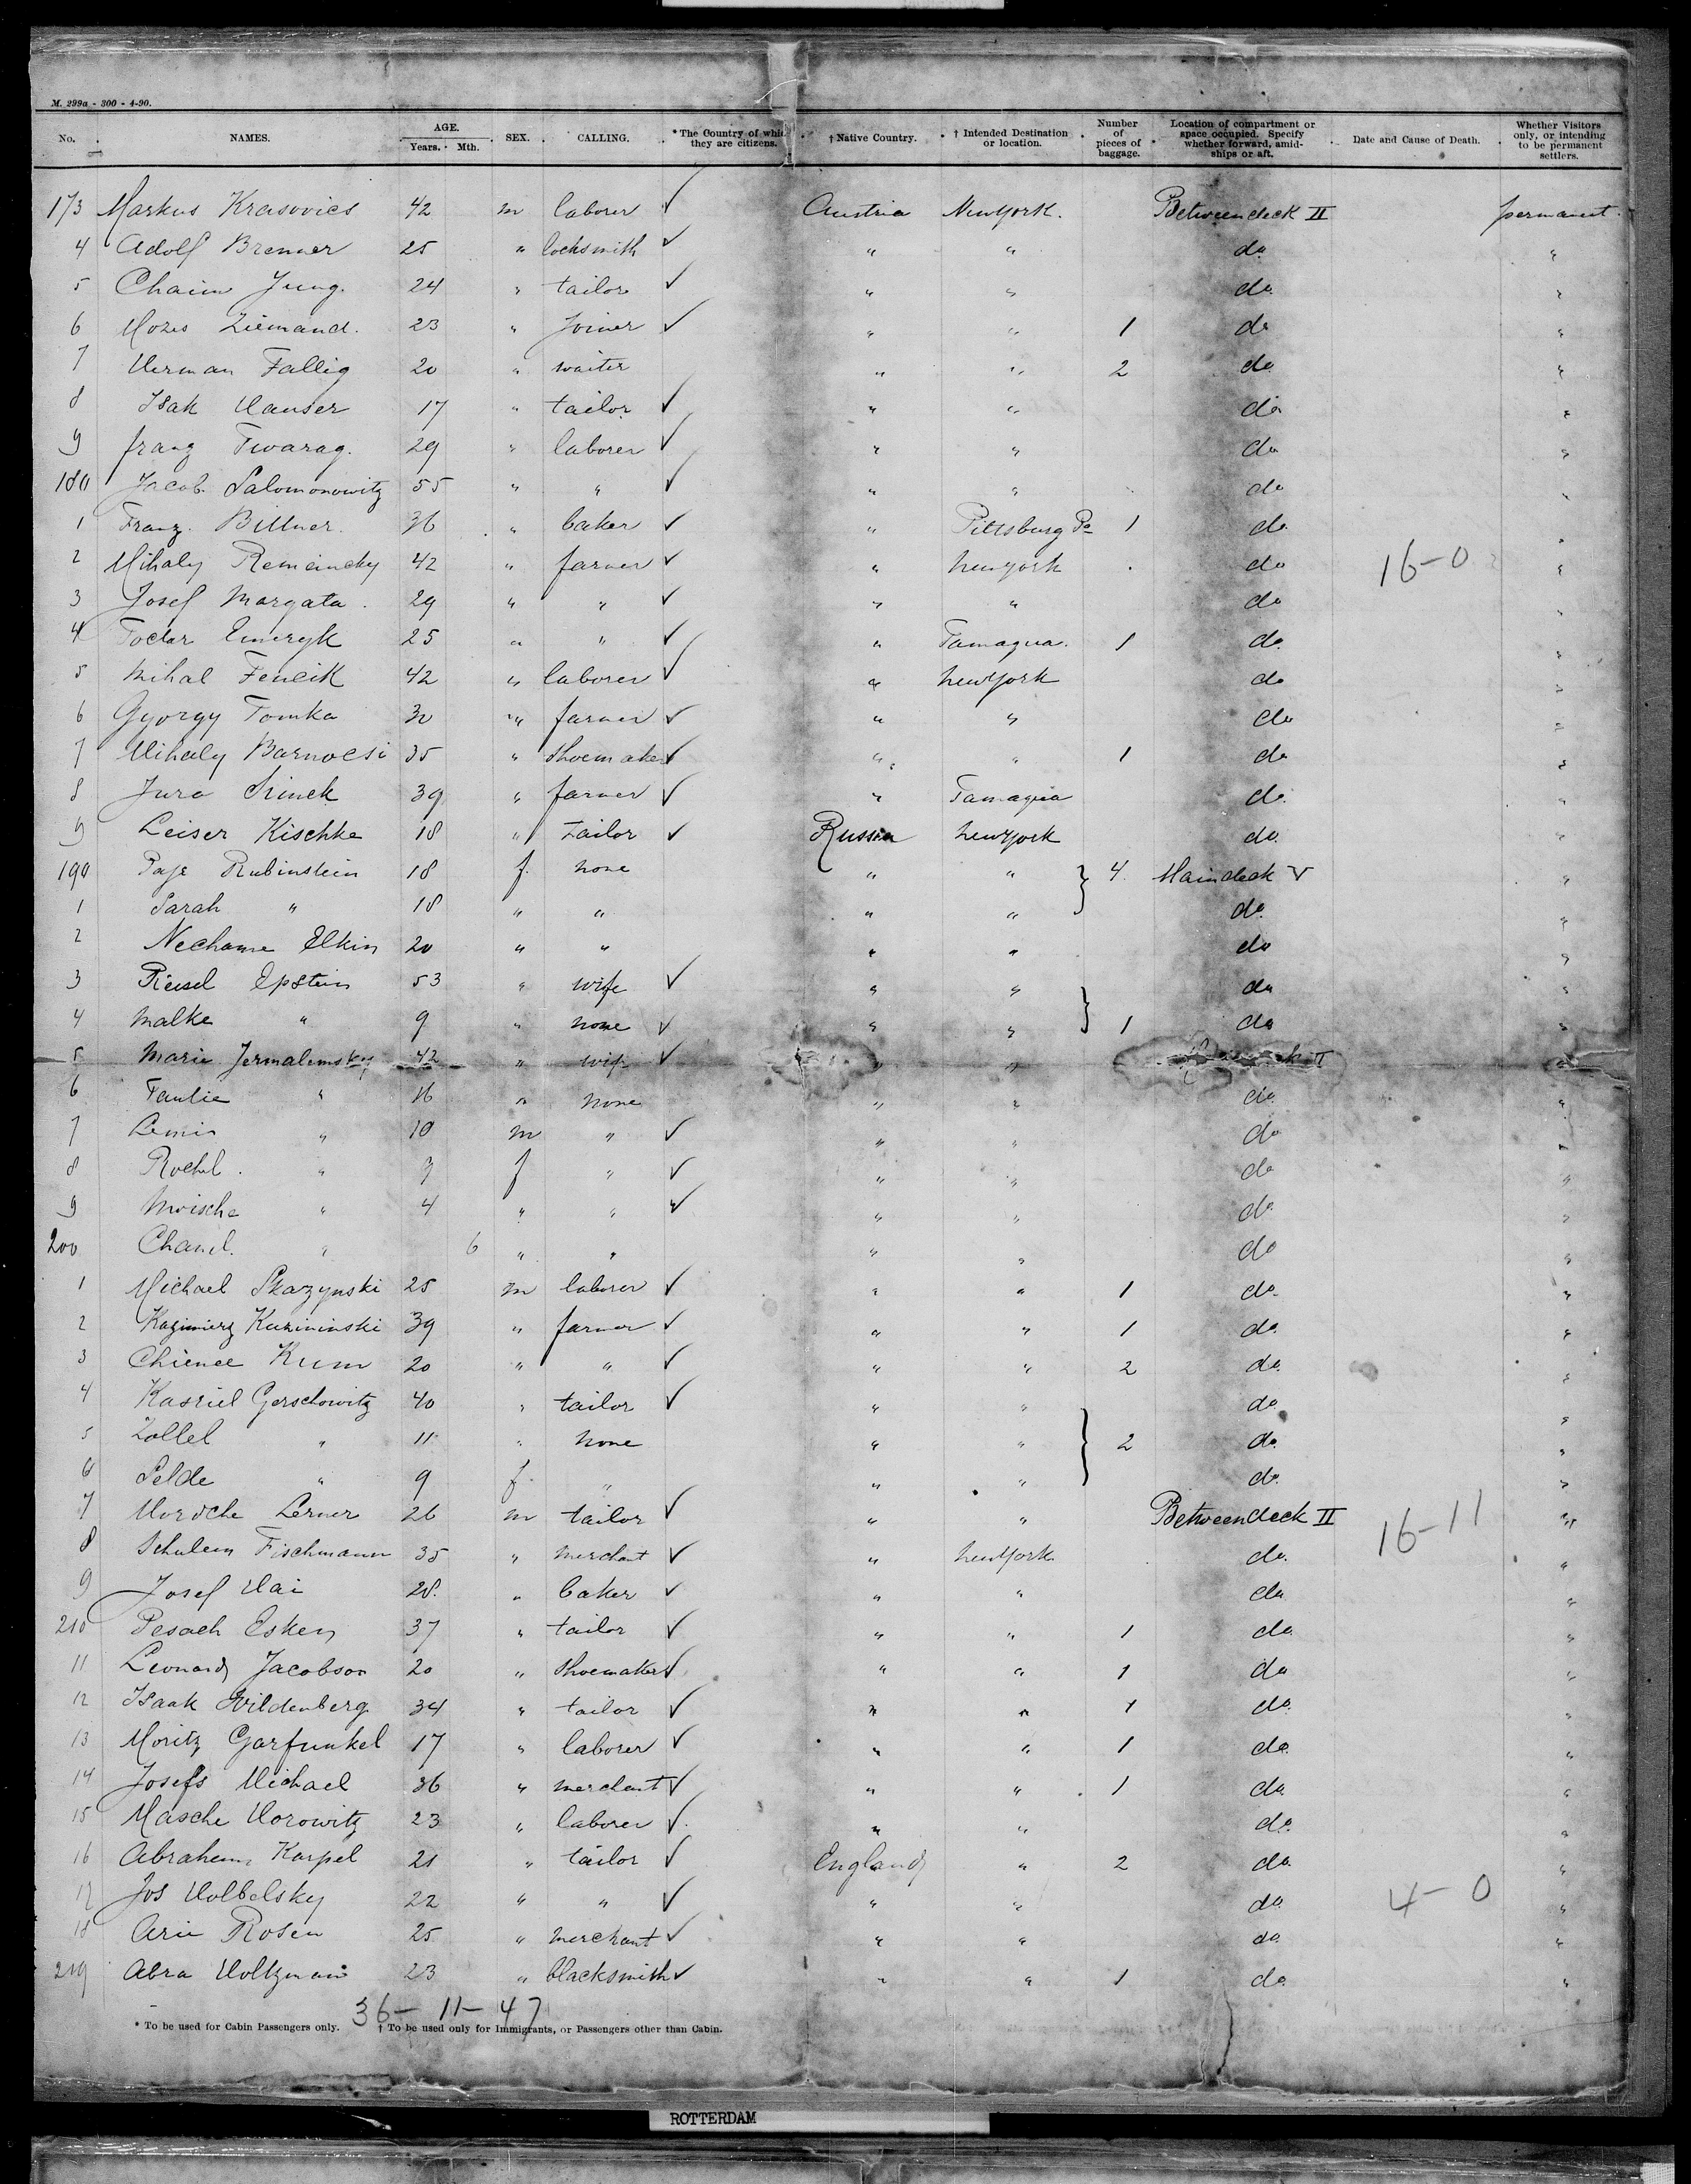 M. 299a - 300 - 4-90.
No. NAMES. AGE. Years. Mth. SEX. CALLING. * The Country of whi they are citizens. † Native Country. † Intended Destination or location. Number of pieces of baggage. Location of compartment or space occupied. Specify whether forward, amidships or aft. Date and Cause of Death. Whether Visitors only, or intending to be permanent settlers.
173 Markus Krasovics 42 m laborer ✓ Austria New York. Betweendeck II permanent.
4 Adolf Brenner 25 " locksmith ✓ " " do. "
5 Chaim Jung. 24 " tailor ✓ " " do. "
6 Mozes Ziemand. 23 " Joiner ✓ " " 1 do "
7 Herman Fallig 20 " waiter " " 2 do "
8 Isak Hauser 17 " tailor ✓ " " do "
9 franz Twarag. 29 " laborer ✓ " " do "
180 Jacob Salomonowitz 55 " " ✓ " " do "
1 Franz. Bittner. 36 " baker ✓ " Pittsburg Pa 1 do. "
2 Mihaly 42 " farmer ✓ " New york do 16-0 "
3 Josef Margata. 29 " " ✓ " " do "
4 Emeryk 25 " " ✓ " Tamaqua. 1 do. "
5 Mihal Fencik 42 " laborer ✓ " New York do "
6 Gyorgy Tomka 30 " farmer ✓ " " do "
7 Mihaly Barnocsi 35 " Shoemaker ✓ " " 1 do "
8 Jura 39 " farmer ✓ " Tamaqua do. "
9 Leiser Kischke 18 " Tailor ✓ Russia New York do. "
190 Paje Rubinstein 18 f. none " " } 4. Maindeck V "
1 Sarah " 18 " " " " do. "
2 Nechame Elkin 20 " " " " do "
3 Reisel Epstein 53 " wife ✓ " " } do "
4 Malke " 9 " none ✓ " " 1 do "
5 Marie Jermalemsky 42 " wife ✓ " " II "
6 " 16 " none " " do. "
7 " 10 m " ✓ " " do "
8 Rochel. " 9 f " ✓ " " do "
9 Moische " 4 " " ✓ " " do "
200 Chanel. " 6 " " " " do "
1 Michael Skarzynski 25 m laborer ✓ " " 1 do. "
2 Kazimierz Kuzininski 39 " farmer ✓ " " 1 do. "
3 Krum 20 " " ✓ " " 2 do. "
4 Kasriel Gerschowitz 40 " tailor ✓ " " } do. "
5 " 11 " none " " 2 do. "
6 Selde " 9 f. " " " do. "
7 Mordche Lerner 26 m tailor ✓ " " Betweendeck II 16-11 "
8 Schulem Fischmann 35 " merchant ✓ " New York do. "
9 Josef Hai 28. " baker ✓ " " do "
210 Pesach Esken 37 " tailor ✓ " " 1 do. "
11 Leonard Jacobson 20 " Shoemaker ✓ " " 1 do "
12 Isaak Wildenberg 34 " tailor ✓ " " 1 do. "
13 Moritz Garfunkel 17 " laborer ✓ " " 1 do. "
14 Josefs Michael 36 " merchant ✓ " " 1 do. "
15 Masche Horowitz 23 " laborer ✓ " " do. "
16 Abraham Karpel 21 " tailor ✓ England " 2 do. "
17 Jos Holbelsky 22 " " ✓ " " do. 4-0 "
18 Arie Rosen 25 " merchant ✓ " " do. "
219 Abra Holtzman 23 " blacksmith ✓ " " 1 do. "
36- 11- 47
* To be used for Cabin Passengers only. † To be used only for Immigrants, or Passengers other than Cabin.
ROTTERDAM